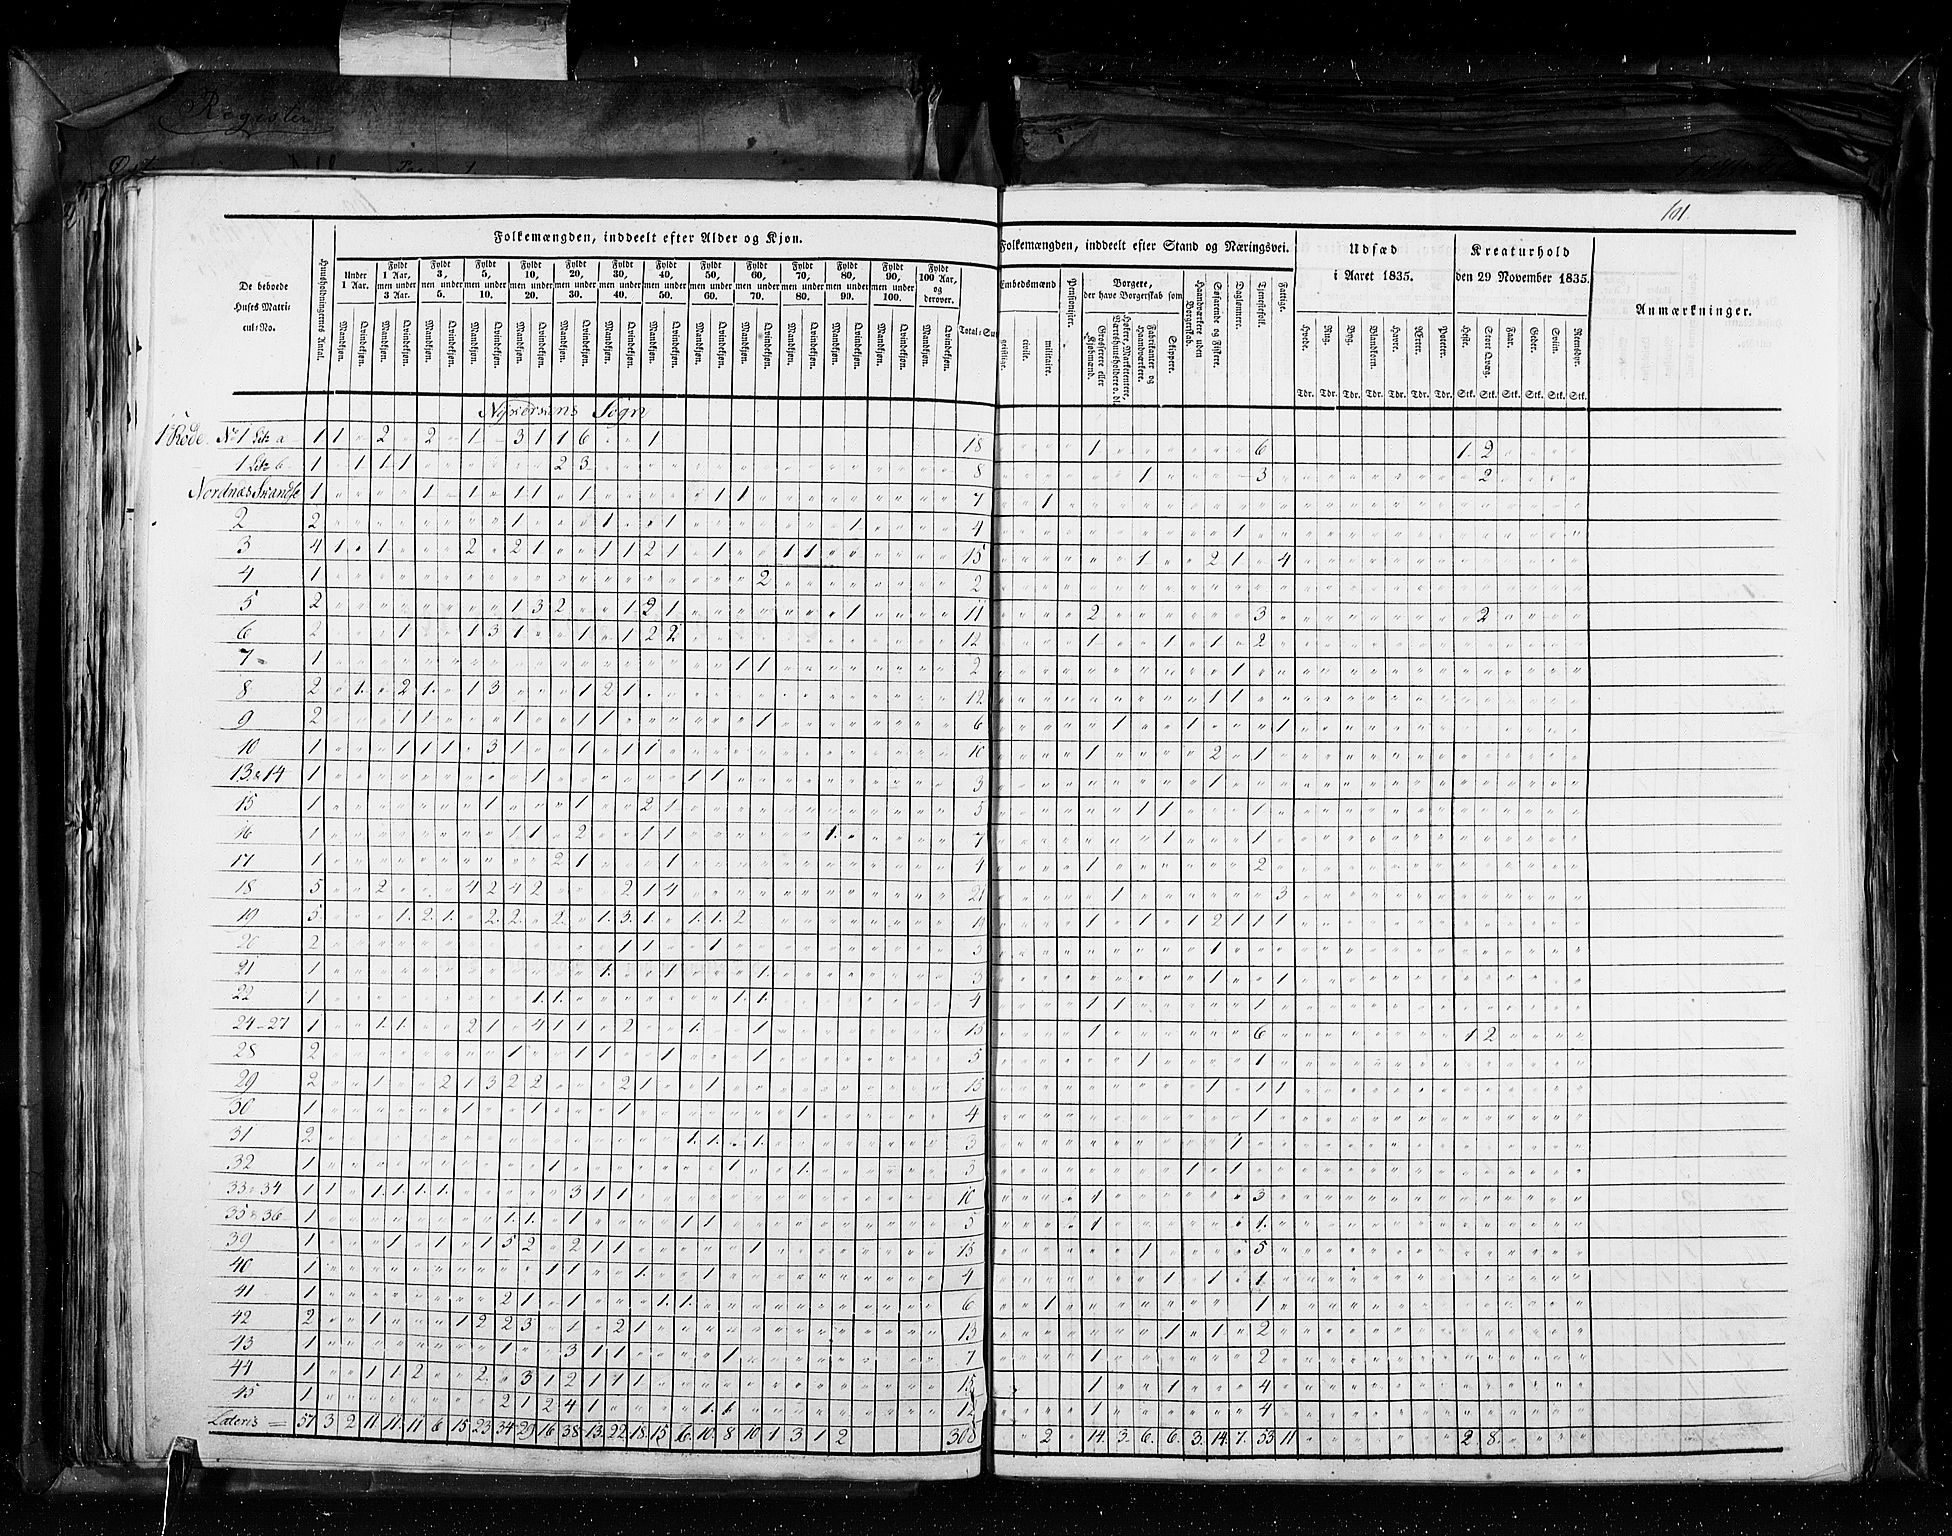 Register
101
Folkemængden, inddeelt efter Alder og Kjøn.
Folkemængden, inddeelt efter Stand og Næringsvei.
Udsæd
i Aaret 1835.
Kreaturhold
den 29 November 1835.
Anmærkninger.
De beboede
Huses Matri-
cul-No.
Huusholdningernes Antal.
Under 1 Aar.
Fyldt 1 Aar, men under 3 Aar.
Fyldt 3, men under 5.
Fyldt 5, men under 10.
Fyldt 10, men under 20.
Fyldt 20, men under 30.
Fyldt 30, men under 40.
Fyldt 40, men under 50.
Fyldt 50, men under 60.
Fyldt 60, men under 70.
Fyldt 70, men under 80.
Fyldt 80, men under 90.
Fyldt 90, men under 100.
Fyldt 100 Aar, og derover.
Mandkjøn. Qvindekjøn.
Total-Sum
Embedsmænd
geistlige. civile. militaire.
Pensionister.
Borgere,
der have Borgerskab som
Grosserere eller Kjøbmænd.
Høkere, Marketentere, Værtshuusholdere o. dl.
Fabrikanter og Haandværkere.
Skippere.
Haandværkere uden Borgerskab.
Søfarende og Fiskere.
Daglønnere.
Tjenestefolk.
Fattige.
Hvede. Rug. Byg. Blandkorn. Havre. Erter. Poteter.
Tdr. Tdr. Tdr. Tdr. Tdr. Tdr. Tdr.
Heste. Stort Qvæg. Faar. Geder. Sviin. Reensdyr.
Stk. Stk. Stk. Stk. Stk. Stk.
Nykorskens Sogn
1ste Rode No 1 Litr a 1 1 2 2 1 3 1 1 6 1 18 1 6 1 2
1 Litr b 1 1 1 1 2 3 8 1 3 2
Nordnæs Skandse 1 1 1 1 1 1 1 1 7 1
2 2 1 1 1 1 4 1
3 4 1 1 2 2 1 1 1 2 1 1 1 1 15 1 2 1 4
4 1 2 2
5 2 1 3 2 1 2 1 1 11 2 3 2
6 2 1 1 3 1 1 1 2 2 12 1 1 1 2
7 1 1 1 2 1
8 2 1 2 1 1 3 1 2 1 12 1 1
9 2 1 1 1 1 1 1 6 1 1 1
10 1 1 1 1 3 1 1 1 1 10 1 2 1
13 & 14 1 1 1 1 3 1
15 1 1 1 2 1 5 1 1 1
16 1 1 1 2 1 1 1 7 1 1
17 1 2 1 1 4 1 2
18 5 2 4 2 4 2 2 1 4 21 1 3
19 5 1 2 1 2 2 2 1 3 1 1 1 2 19 1 1 1 2 1 1 1
20 2 1 1 1 3 1
21 1 1 1 1 3 1 1
22 1 1 1 1 1 4 1 1 1
24-27 1 1 1 2 1 4 1 1 2 1 1 15 1 6 1 2
28 2 1 1 1 1 1 5 1 1
29 2 1 2 1 3 2 2 2 1 1 15 1 1 1
30 1 1 1 1 1 4 1
31 2 1 1 1 3 1
32 1 1 1 1 3 1 1
33 & 34 1 1 1 1 1 1 3 1 1 10 1 3
35 & 36 1 1 1 1 1 1 5 1 1
39 1 1 1 1 5 2 2 1 1 1 15 1 5
40 1 1 1 1 1 4 1 1 1
41 1 2 1 1 1 1 6 1 1
42 2 1 1 2 2 3 1 2 1 13 1 1 2
43 1 1 3 1 1 1 7 1 2
44 1 1 1 2 2 3 1 2 1 1 1 15 1 1 4
45 1 2 1 2 4 1 1 1 12 1 4
Lateris 57 3 2 11 11 11 6 15 23 34 29 16 38 13 22 18 15 6 10 8 10 1 3 1 2 308 2 14 3 6 6 3 14 7 53 11 2 8